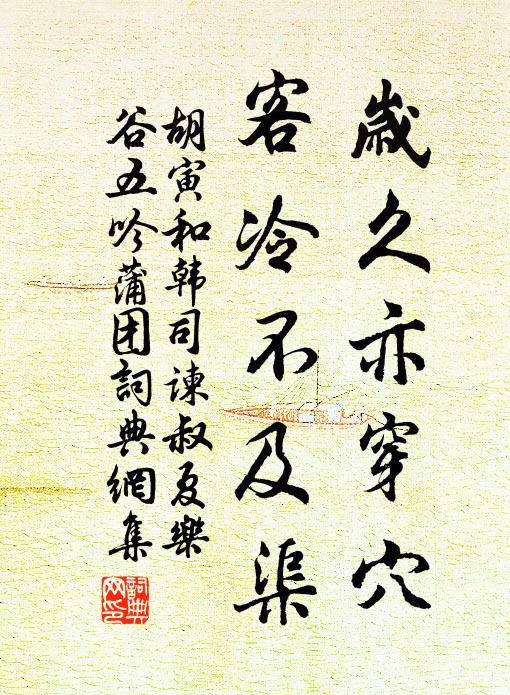 歲久亦穿穴
客冷不及渠
胡寅和韩司諫叔夏樂
谷五吟蒲团詞典網集
詞典網印